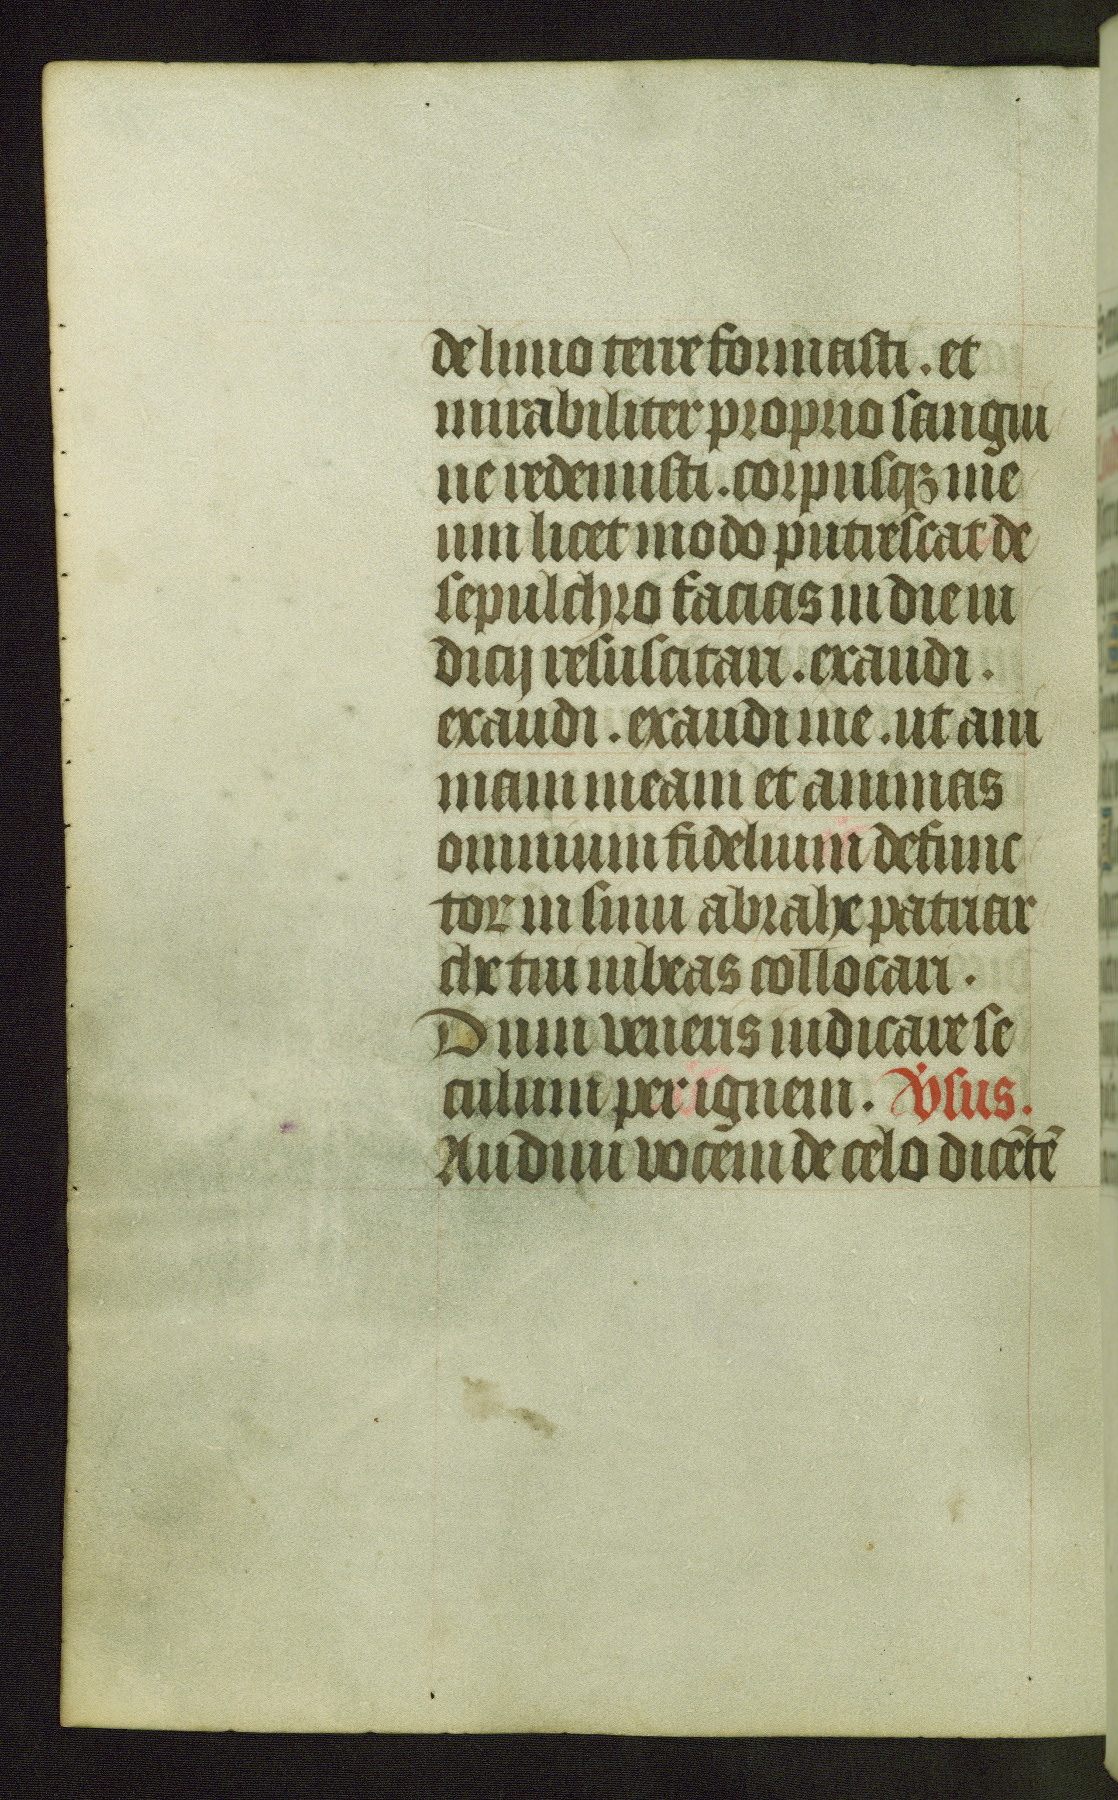 de limo terre formasti. et
mirabiliter proprio sangui
ne redemisti. corpusqꝫ me
um licet modo putrescat de
sepulchro facias in die iu
dicij resuscitari. exaudi.
exaudi. exaudi me. ut ani
mam meam et animas
omnium fidelium defunc
toꝝ in sinu abrahe patriar
che tui iubeas collocari.
Dum veneris iudicare se
culum per ignem. v̇sus.
Audiui vocem de celo dicētē